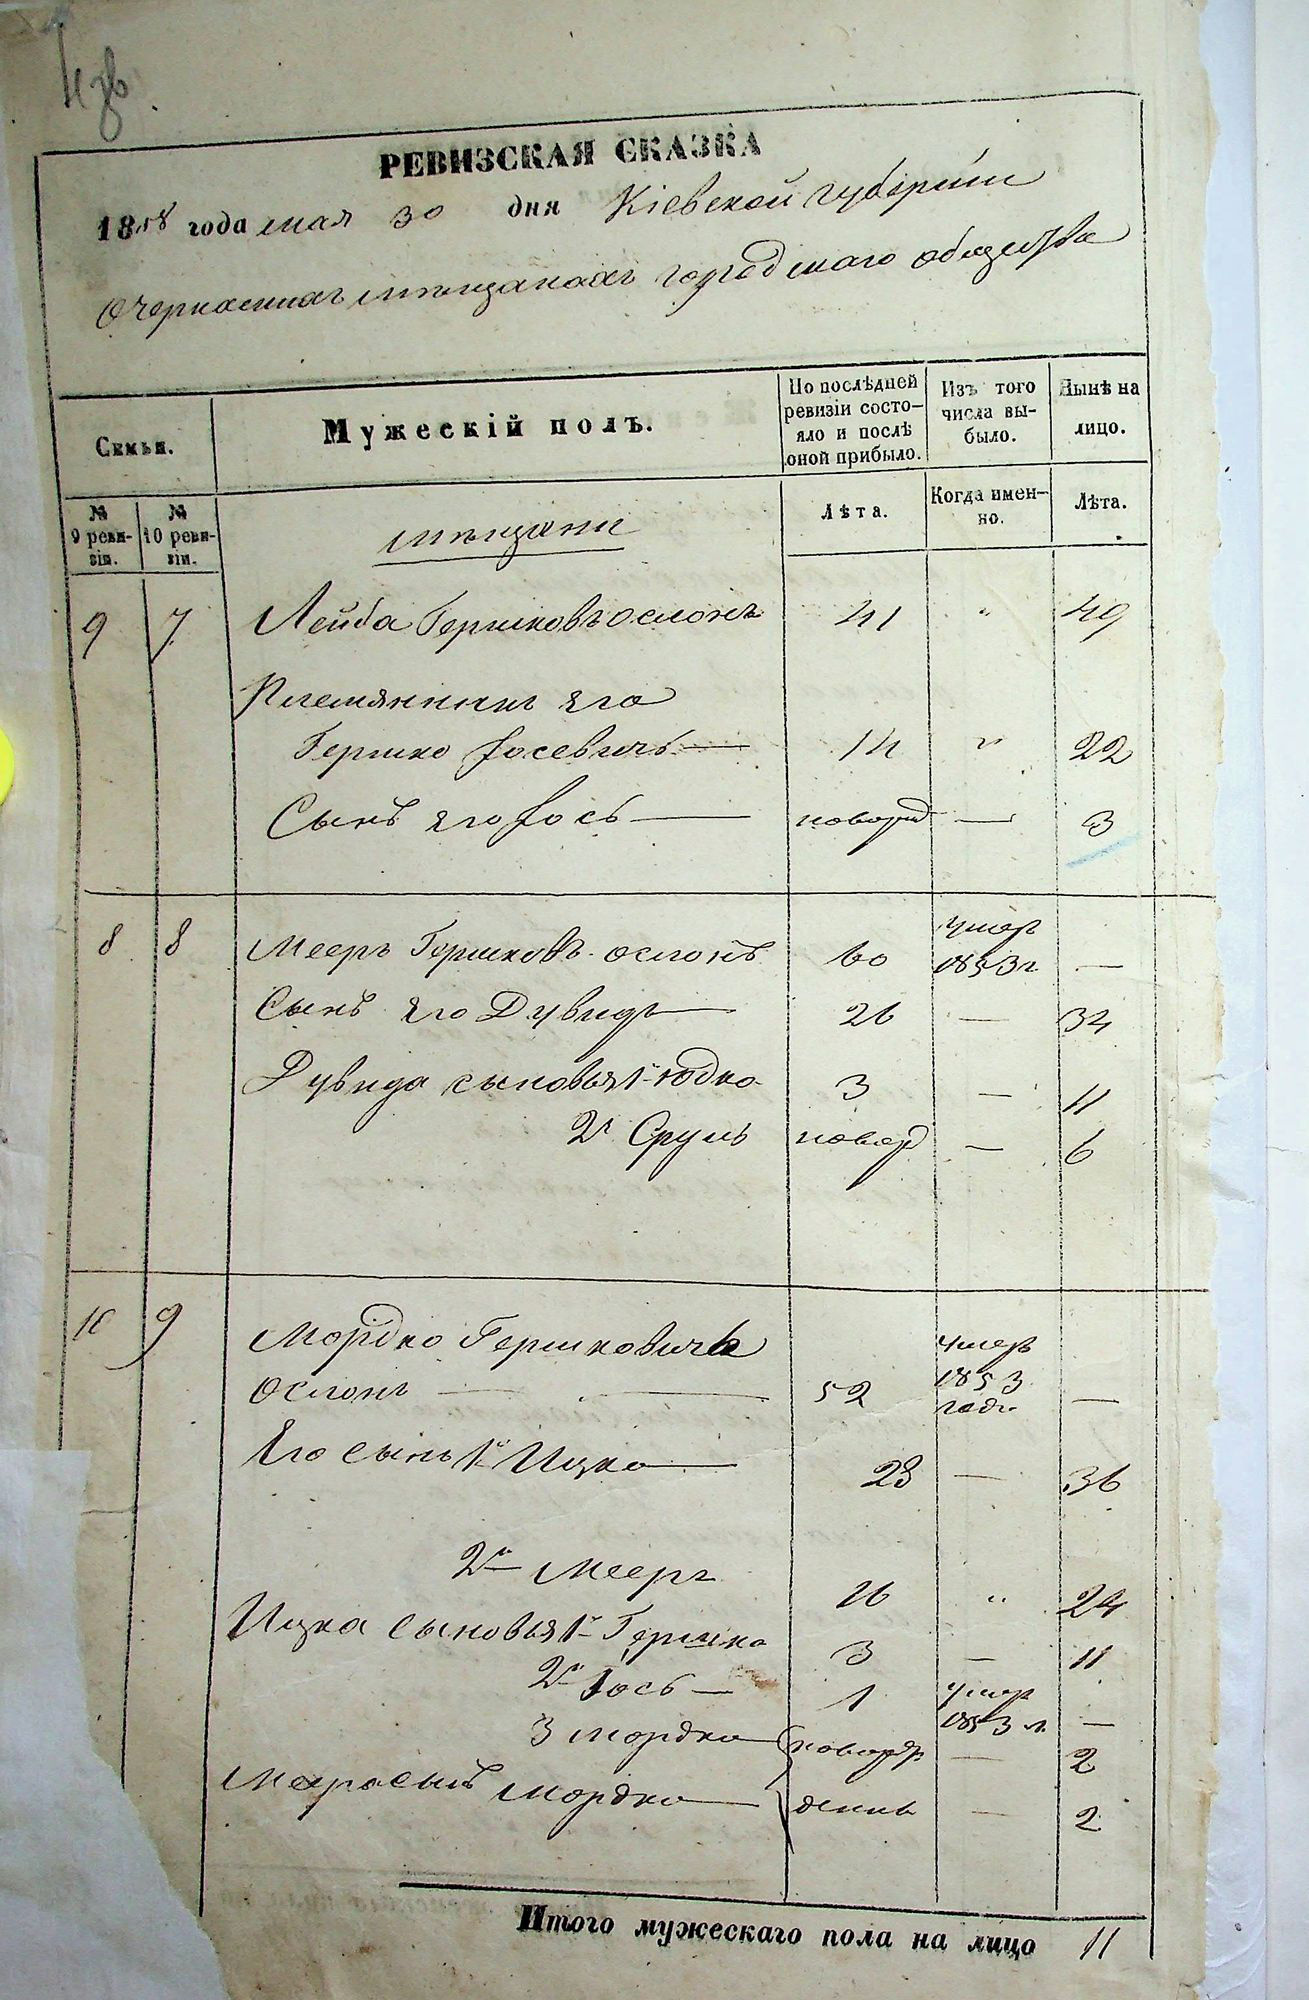 4 зв.
РЕВИЗСКАЯ СКАЗКА
1858 года мая 30 дня Кіевской губерніи
О черкаскихъ мѣщанахъ городскаго общества
Семьи.
Мужескій полъ.
По послѣдней ревизіи состояло и послѣ оной прибыло.
Изъ того числа выбыло.
Нынѣ на лицо.
№ 9 ревизіи.
№ 10 ревизіи.
мѣщане
Лѣта.
Когда именно.
Лѣта.
9 7 Лейба Гершковъ Ослонъ 41 " 49
Племянникъ его
Гершко Іосевичъ — 14 " 22
Сынъ его Іось — новорж — 3
8 8 Мееръ Гершковъ Ослонъ 60 умеръ 1853 г. —
Сынъ его Дувидъ — 26 — 34
Дувида сыновья 1й Юдко 3 — 11
2й Сруль новор — 6
10 9 Мордко Гершковичъ
Ослонъ — 52 умеръ 1853 года —
Его сынъ 1й Ицко — 28 — 36
2й Мееръ 16 " 24
Ицка сыновья 1й Гершко 3 — 11
2й Іось — 1 умеръ 1853 г. —
3 Мордко — новорж — 2
Меера сынъ Мордко — денные — 2
Итого мужескаго пола на лицо 11